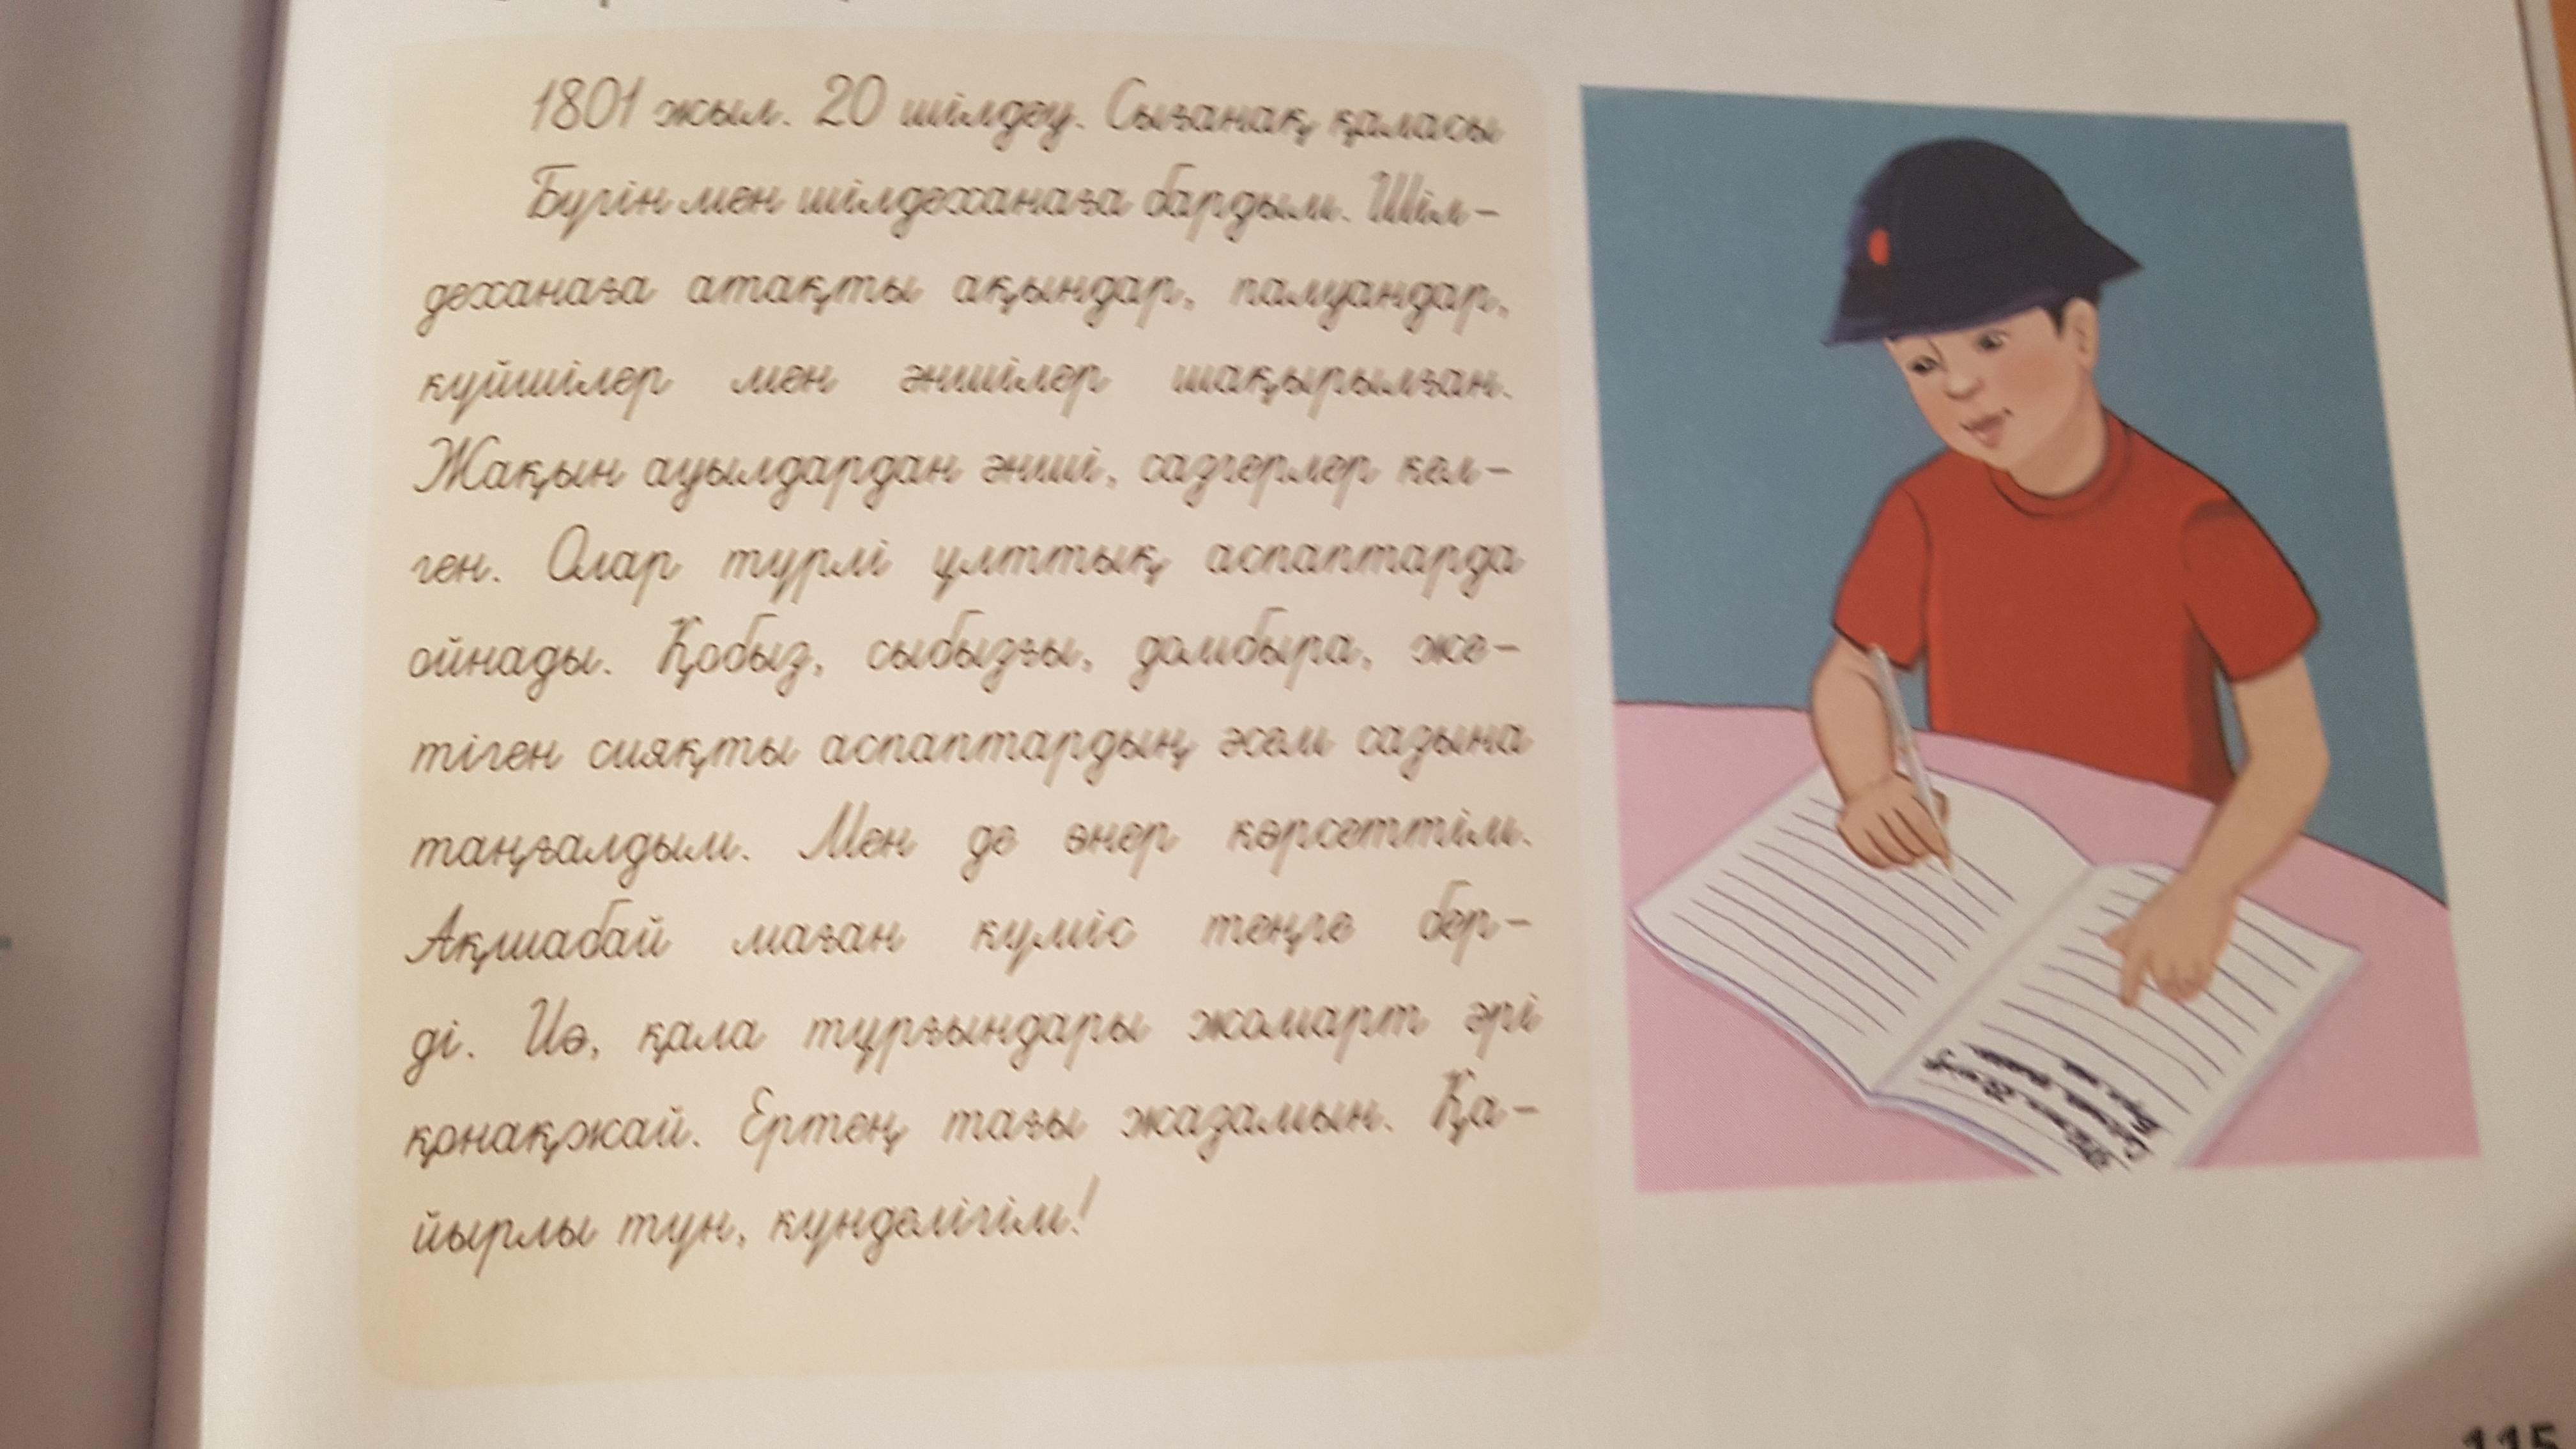 1801 жыл. 20 шілдеу. Сығанақ қаласы
Бүгін мен шілдеханаға бардым. Шіл-
деханаға атақты ақындар, палуандар,
күйшілер мен әншілер шақырылған.
Жақын ауылдардан әнші, сазгерлер кел-
ген. Олар түрлі ұлттық аспаптарда
ойнады. Қобыз, сыбызғы, домбыра, же-
тіген сияқты аспаптардың әсем сазына
таңғалдым. Мен де өнер көрсеттім.
Ақшабай маған күміс теңге бер-
ді. Иә, қала тұрғындары жомарт әрі
қонақжай. Ертең тағы жазамын. Қа-
йырлы түн, күнделігім!
115